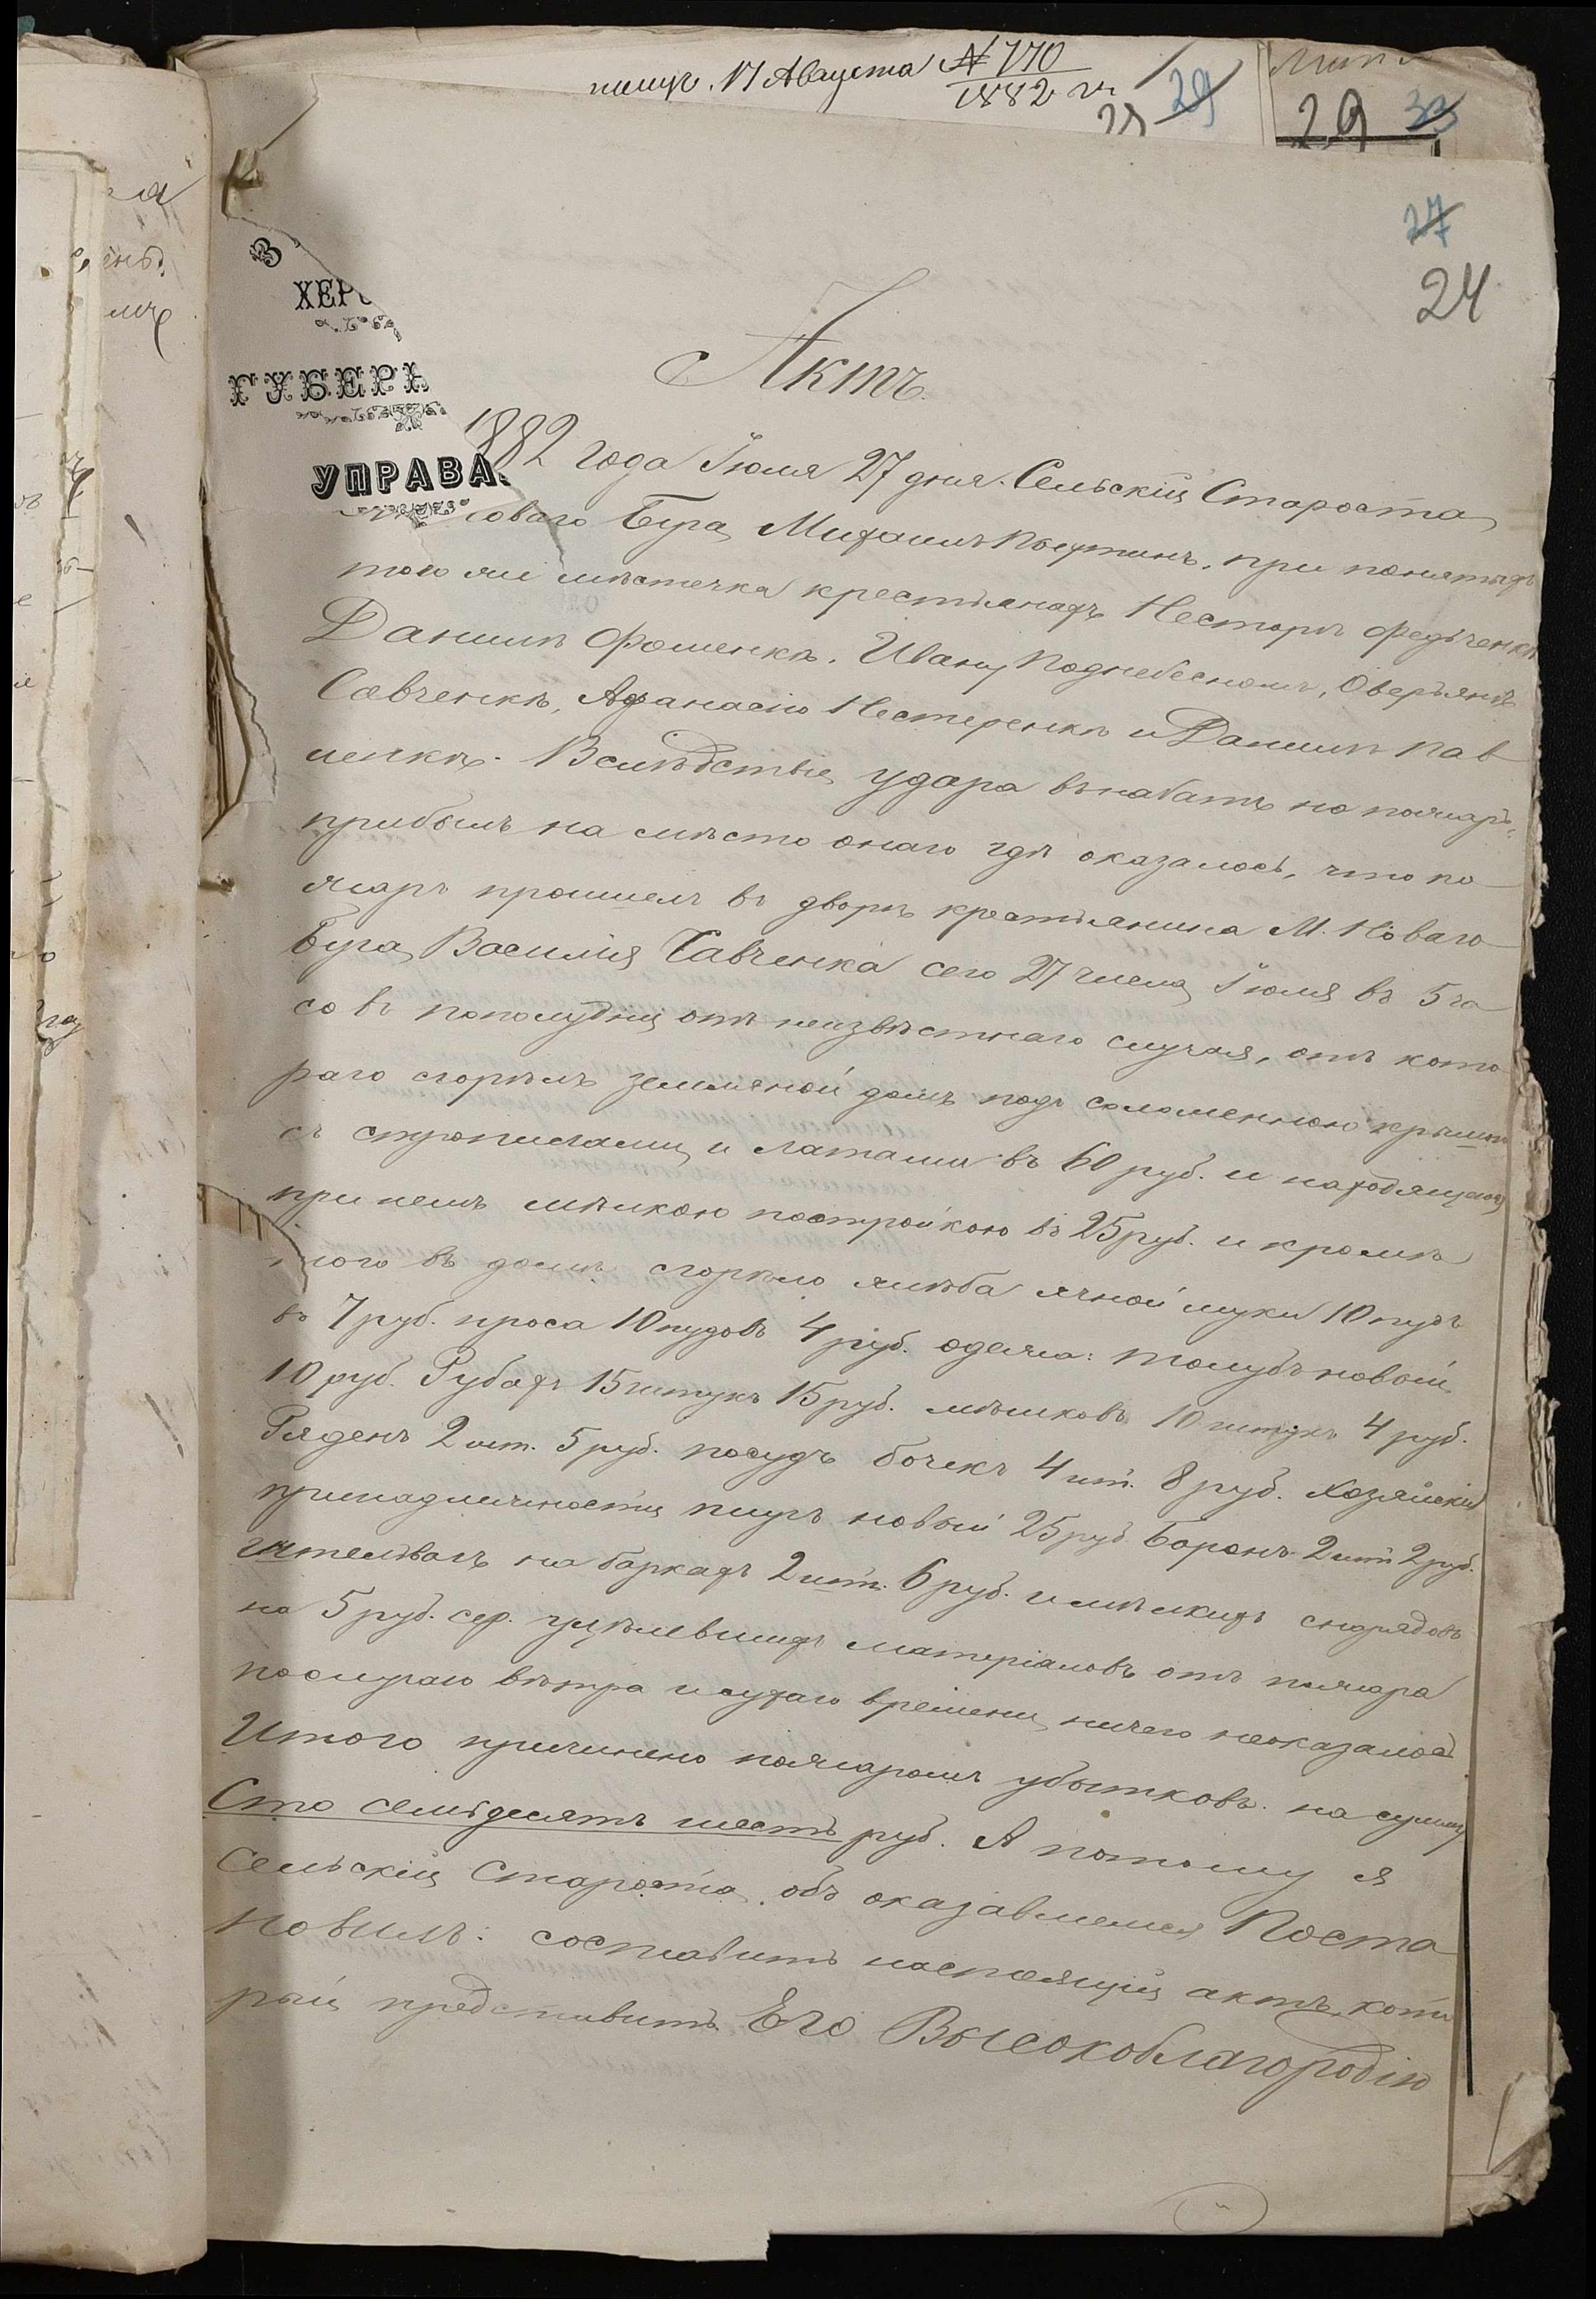 получ. 17 Августа № 770
1882 г.
29
29 33
27
24
З
ХЕРС
ГУБЕРН
УПРАВА
Актъ.
1882 года Іюля 27 дня. Сельскій Староста
Новаго Буга Михаилъ, при понятыхъ
того же мѣстечка крестьянахъ Несторѣ Федченкѣ
Данилѣ Фоменкѣ, Ивану Поднебесномъ, Оверьянѣ
Савченкѣ, Афанасію Нестеренкѣ и Данилѣ Пав
ленкѣ. Вслѣдствіе удара въ набатъ на пожаръ,
прибылъ на мѣсто онаго гдѣ оказалось, что по
жаръ прошшелъ въ дворѣ крестьянина М. Новаго
Буга Василія Савченка сего 27 числа Іюля въ 5 ча
совъ пополудни отъ неизвѣстнаго случая, отъ кото
раго сгорѣлъ земляной домъ подъ соломенною крышею
съ стропилами и латами въ 60 руб. и находящеюся
при немъ мѣлкою постройкою въ 25 руб. и кромѣ
того въ домѣ сгорѣло хлѣба ячной муки 10 пуд.
въ 7 руб. проса 10 пудовъ 4 руб. одежа: толубъ новый
10 руб. Рубахъ 15 штукъ 15 руб. мѣшковъ 10 штукъ 4 руб.
Ряденъ 2 шт. 5 руб. посудъ бочекъ 4 шт. 8 руб. хозяйскія
принадлежности плугъ новый 25 руб. Боронъ 2 шт 2 руб.
на баркахъ 2 шт. 6 руб. и мѣлкихъ снарядовъ
на 5 руб. сер. уцѣлевшихъ матеріаловъ отъ пожара
послучаю вѣтра и сухаго времени ничего неоказалось
Итого причинено пожаромъ убытковъ на сумму
Сто семьдесятъ шесть руб. А потому я
Сельскій Староста объ оказавшемся Поста
новилъ: составить настоящій актъ, кото
рый представить Его Высокоблагородію